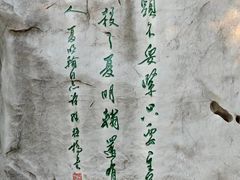 頭不要緊只要主
殺了夏明翰還有
人 夏明翰同志诗